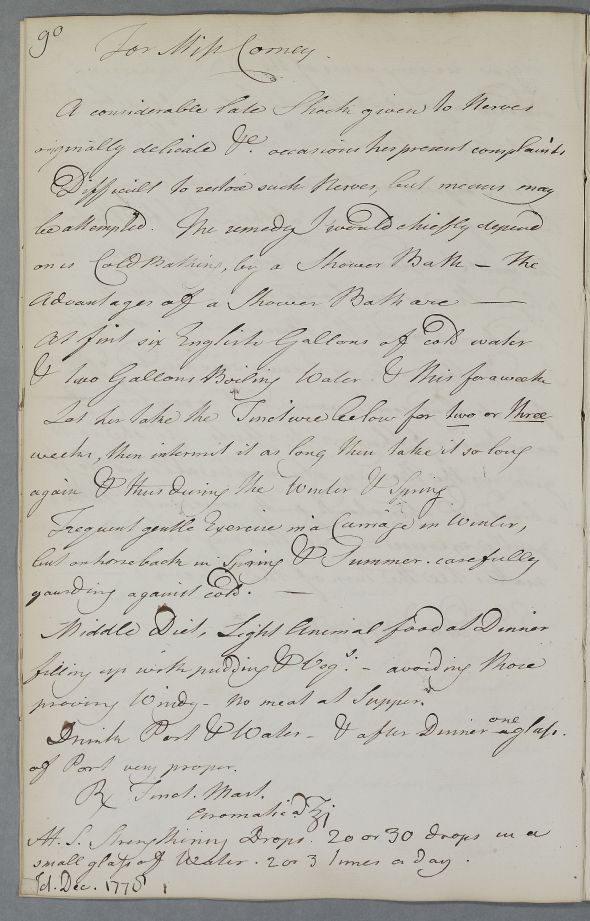 90
For Miss Corney.
A considerable late Shock given to Nerves
originally delicate &c. occasions her present complaints
Difficult to restore such Nerves, but means may
be attempted. The remedy I would chiefly depend
on is Cold Bathing, by a Shower Bath – The
Advantages of a Shower Bath are —
At first six English Gallons of cold water
& two Gallons Boiling Water & this for a week
Let her take the Tincture below for two or three
weeks, then intermit it as long then take it so long
again & thus during the Winter & Spring.
Frequent gentle Exercise in a Carriage in Winter,
but on horseback in Spring & Summer. carefully
guarding against cold. —
Middle Diet, Light Animal food at Dinner
filling up with pudding & Veg.s – avoiding those
proving Windy – No meat at Supper.
Drink Port & Water – & after Dinner one glass.
of Port very proper.
℞ Tinct. Mart.
Aromatic a ʒj
M. S. Strengthening Drops. 20 or 30 drops in a
small glass of Water. 2 or 3 times a day.
Dec. 1776